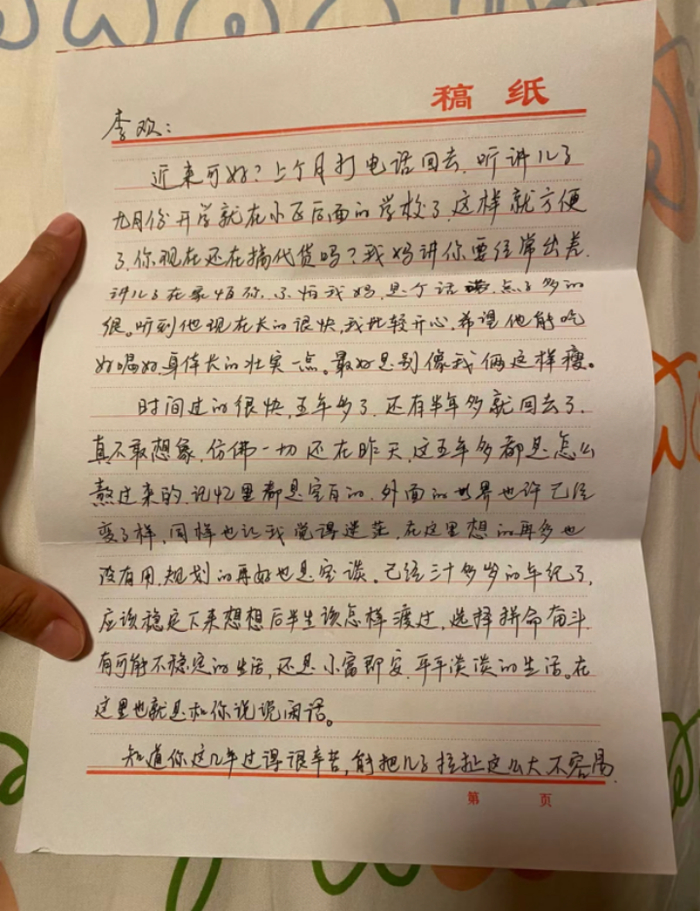 稿 纸
李欢：
近来可好？上个月打电话回去，听讲儿子
九月份开学就在小区后面的学校了，这样就方便
了，你现在还在搞代货吗？我妈讲你要经常出差，
讲儿子在家烦你，不怕我妈，是个话，点子多的
很。听到他现在长的很快，我比较开心，希望他能吃
好喝好，身体长的壮实一点。最好是别像我俩这样瘦。
时间过的很快，五年多了，还有半年多就回去了，
真不敢想象，仿佛一切还在昨天，这五年多都是怎么
熬过来的，记忆里都是空白的，外面的世界也许已经
变了样，同样也让我觉得迷茫，在这里想的再多也
没有用，规划的再好也是空谈，已经三十多岁的年纪了，
应该稳定下来想想后半生该怎样渡过，选择拼命奋斗
有可能不稳定的生活，还是小富即安，平平淡淡的生活。在
这里也就是和你说说闲话。
知道你这几年过得很辛苦，能把儿子拉扯这么大不容易，
第 页